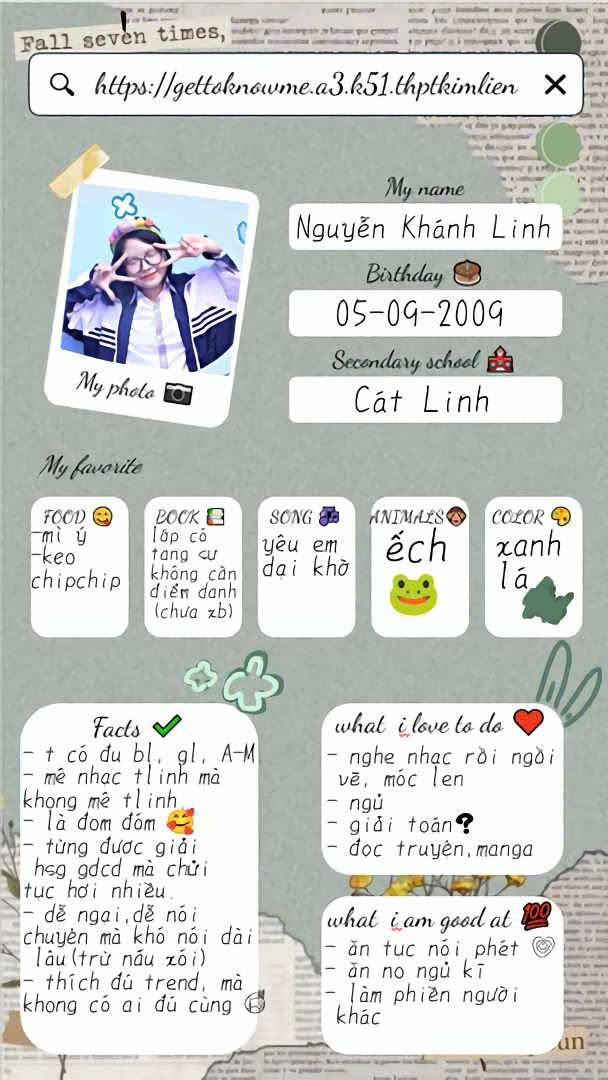 Fall seven times,
https://gettoknowme.a3.k51.thptkimlien
My name
Nguyễn Khánh Linh
Birthday
05-09-2009
Secondary school
Cát Linh
My photo
My favorite
FOOD
-mì ý
-kẹo
chipchip
BOOK
lớp có
tang sự
không cần
điểm danh
(chưa xb)
SONG
yêu em
dại khờ
ANIMALS
ếch
COLOR
xanh
lá
Facts
- t có đu bl, gl, A-M
- mê nhạc tlinh mà
khong mê tlinh
- là đom đóm
- từng được giải
hsg gdcd mà chửi
tục hơi nhiều.
- dễ ngại,dễ nói
chuyện mà khó nói dài
lâu(trừ nấu xói)
- thích đú trend, mà
khong có ai đú cùng
what i love to do
- nghe nhạc rồi ngồi
vẽ, móc len
- ngủ
- giải toán?
- đọc truyện,manga
what i am good at 100
- ăn tục nói phét
- ăn no ngủ kĩ
- làm phiền người
khác